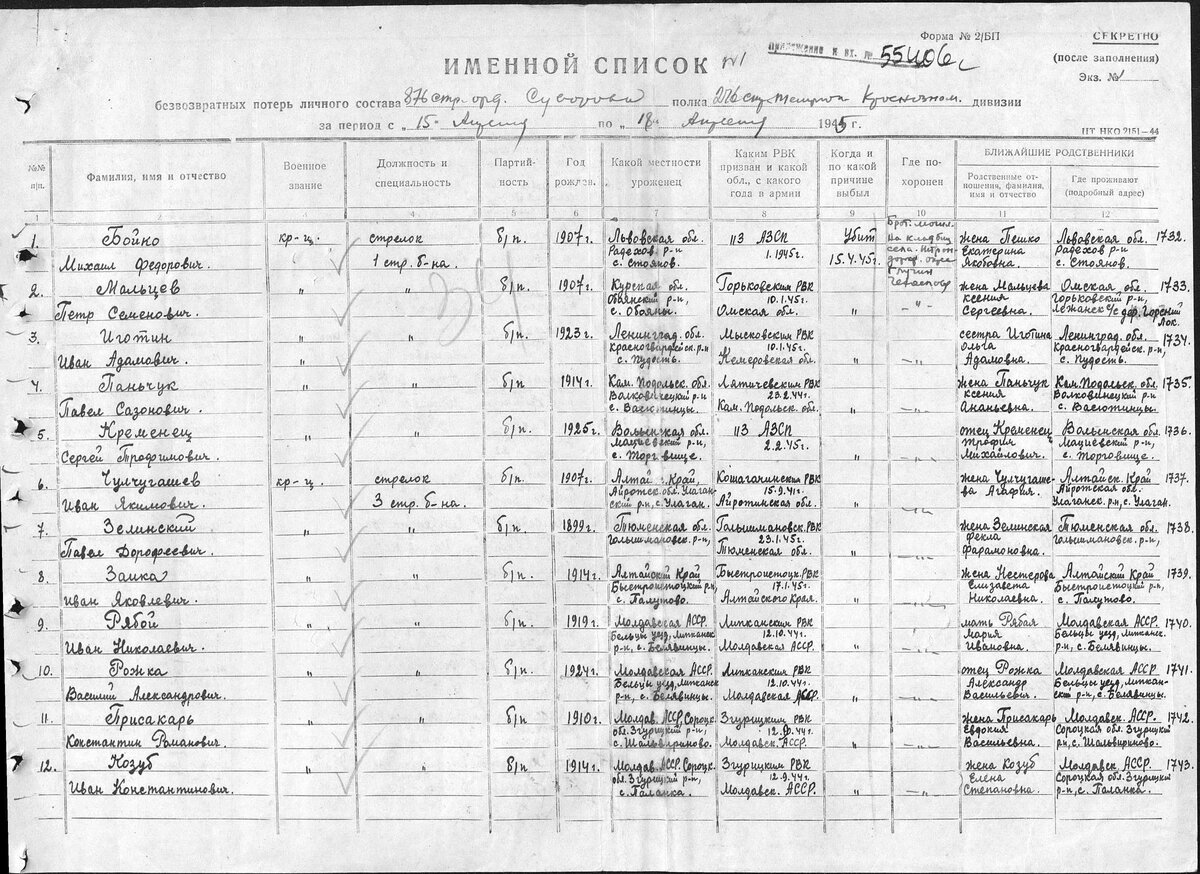 Форма № 2/БП
СЕКРЕТНО
(после заполнения)
Экз. №1
Приложение к вх. № 55406с
ИМЕННОЙ СПИСОК №1
безвозвратных потерь личного состава 876 стр. орд. Суворова полка 226 стр. Краснознам. дивизии
за период с „15“ Апреля по „18“ Апреля 1945 г.
ЦТ. НКО 2151—44
№№ п/п.
Фамилия, имя и отчество
Военное звание
Должность и специальность
Партийность
Год рожден.
Какой местности уроженец
Каким РВК призван и какой обл., с какого года в армии
Когда и по какой причине выбыл
Где похоронен
БЛИЖАЙШИЕ РОДСТВЕННИКИ
Родственные отношения, фамилия, имя и отчество
Где проживают (подробный адрес)
1 2 3 4 5 6 7 8 9 10 11 12
1. Бойко кр-ц. стрелок б/п. 1907г. Львовская обл. 113 АЗСП Убит жена Пешко Львовская обл. 1732.
Михаил Федорович. 1 стр. б-на. Радехов р-н 1.1945г. 15.4.45г. Екатерина Радехов р-н
с. Стоянов. Якобовна. с. Стоянов.
Брат. могил.
на кладбищ
села
2. Мальцев „ „ б/п. 1907г. Курская обл. Горьковским РВК „ жена Мальцева Омская обл. 1733.
Петр Семенович. Обоянский р-н, 10.1.45г. ксения Горьковский р-н,
с. Обояны. Омская обл. Сергеевна. Лежанск с/с
3. Иготин „ „ б/п. 1923г. Ленинград. обл. Мысковским РВК „ сестра Иготина Ленинград. обл. 1734.
Иван Адамович. Красногвардейск. р-н 10.1.45г. Ольга Красногвардейск. р-н,
с. Пудость. Кемеровская обл. Адамовна. с. Пудость.
4. Паньчук „ „ б/п. 1914г. Кам. Подольск. обл. Латичевским РВК „ жена Паньчук Кам. Подольск. обл. 1735.
Павел Сазонович. Волковинецкий р-н 23.2.44г. ксения Волковинецкий р-н
с. Васютинцы. Кам. Подольск. обл. Ананьевна. с. Васютинцы.
5. Кременец „ „ б/п. 1925г. Волынская обл. 113 АЗСП „ отец Кременец Волынская обл. 1736.
Сергей Трофимович. Мациевский р-н, 2.2.45г. Трофим Мациевский р-н,
с. Торговище. Михайлович. с. Торговище.
6. Чулчугашев кр-ц. стрелок б/п. 1907г. Алтай. Край, Кошагачинским РВК „ жена Чулчугаше- Алтайск. Край 1737.
Иван Якимович. 3 стр. б-на. Айротск. обл. Улаган- 15.9.41г. ва Агафия. Айротская обл.
ский р-н, с. Улаган. Айротинская обл. Улаганск. р-н, с. Улаган.
7. Зелинский „ „ б/п. 1899г. Тюменская обл. Голышмановск. РВК „ жена Зелинская Тюменская обл. 1738.
Павел Дорофеевич. Голышмановск. р-н, 23.1.45г. Фекла Голышмановск. р-н,
Тюменская обл. Фарамоновна.
8. Заика „ „ б/п. 1914г. Алтайский Край Быстроистоцк. РВК „ жена Нестерова Алтайский Край 1739.
Иван Яковлевич. Быстроистоцкий р-н, 17.1.45г. Елизавета Быстроистоцкий р-н,
с. Палутово. Алтайского Края. Николаевна. с. Палутово.
9. Рябой „ „ б/п. 1919г. Молдавская АССР. Липканским РВК „ мать Рябая Молдавская АССР. 1740.
Иван Николаевич. Бельцы уезд, Липканск. 12.10.44г. Мария Бельцы уезд, Липканск.
р-н, с. Белявинцы. Молдавская АССР. Ивановна. р-н, с. Белявинцы.
10. Рожка „ „ б/п. 1924г. Молдавская АССР. Липканским РВК „ отец Рожка Молдавская АССР. 1741.
Василий Александрович. Бельцы уезд, Липканск 12.10.44г. Александр Бельцы уезд, Липкан-
р-н, с. Белявинцы. Молдавская АССР. Васильевич. ский р-н, с. Белявинцы.
11. Присакарь „ „ б/п. 1910г. Молдав. АССР. Сороцк. Згурицким РВК „ жена Присакарь Молдавск. АССР. 1742.
Константин Романович. обл. Згурицкий р-н, 12.10.44г. Евдокия Сороцкая обл. Згурицкий
с. Шальвириново. Молдавск. АССР. Васильевна. р-н, с. Шальвириново.
12. Козуб „ „ б/п. 1914г. Молдав. АССР. Сороцк. Згурицким РВК „ жена Козуб Молдавск АССР. 1743.
Иван Константинович. обл. Згурицкий р-н, 12.9.44г. Елена Сороцкая обл. Згурицкий
с. Паланка. Молдавск. АССР. Степановна. р-н, с. Паланка.